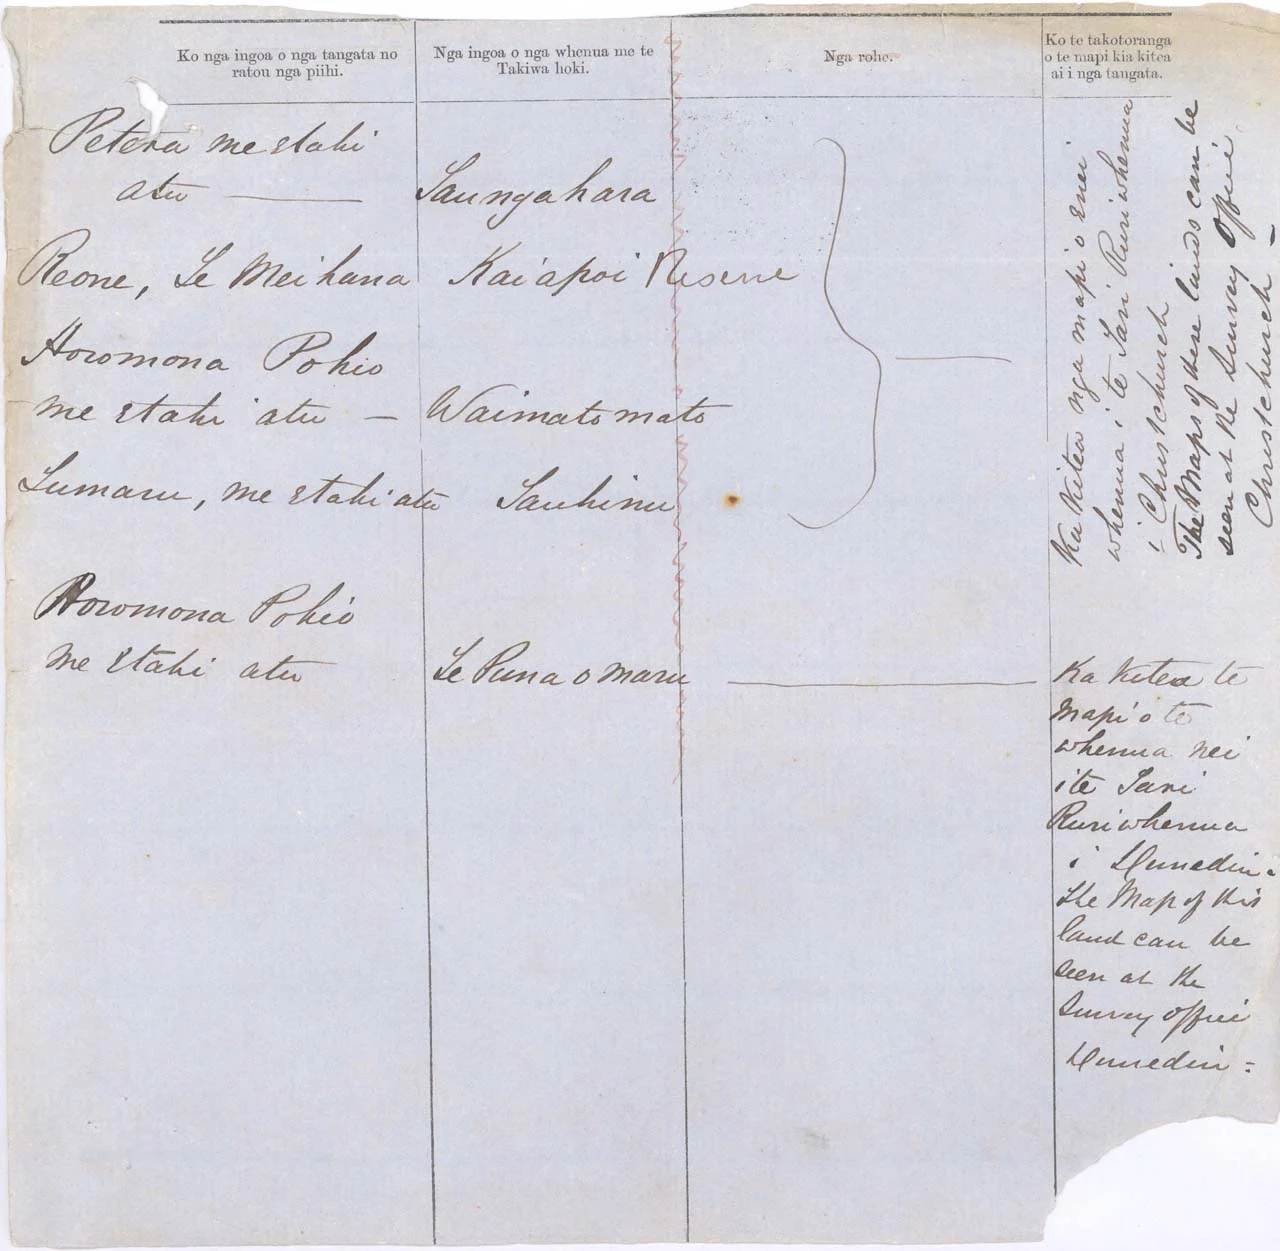 Ko nga ingoa o nga tangata no
ratou nga piihi.
Nga ingoa o nga whenua me te
Takiwa hoki.
Nga rohe.
Ko te takotoranga
o te mapi kia kitea
ai i nga tangata.
Petera me etahi
atu
Taungahara
Reone, Te Meihana
Kaiapoi Reserve
Horomona Pohio
me etahi atu — Waimatemate
Tumaru, me etahi atu
Tauhinu
Horomona Pohio
me etahi atu
Te Puna o maru
Ka Kitea nga mapi o enei
whenua i te Tari Ruri whenua
i Christchurch
The Maps of these lands can be
seen at the Survey Office
Christchurch —
Ka Kitea te
mapi o te
whenua nei
i te Tari
Ruri whenua
i Dunedin.
The Map of this
land can be
seen at the
Survey Office
Dunedin =